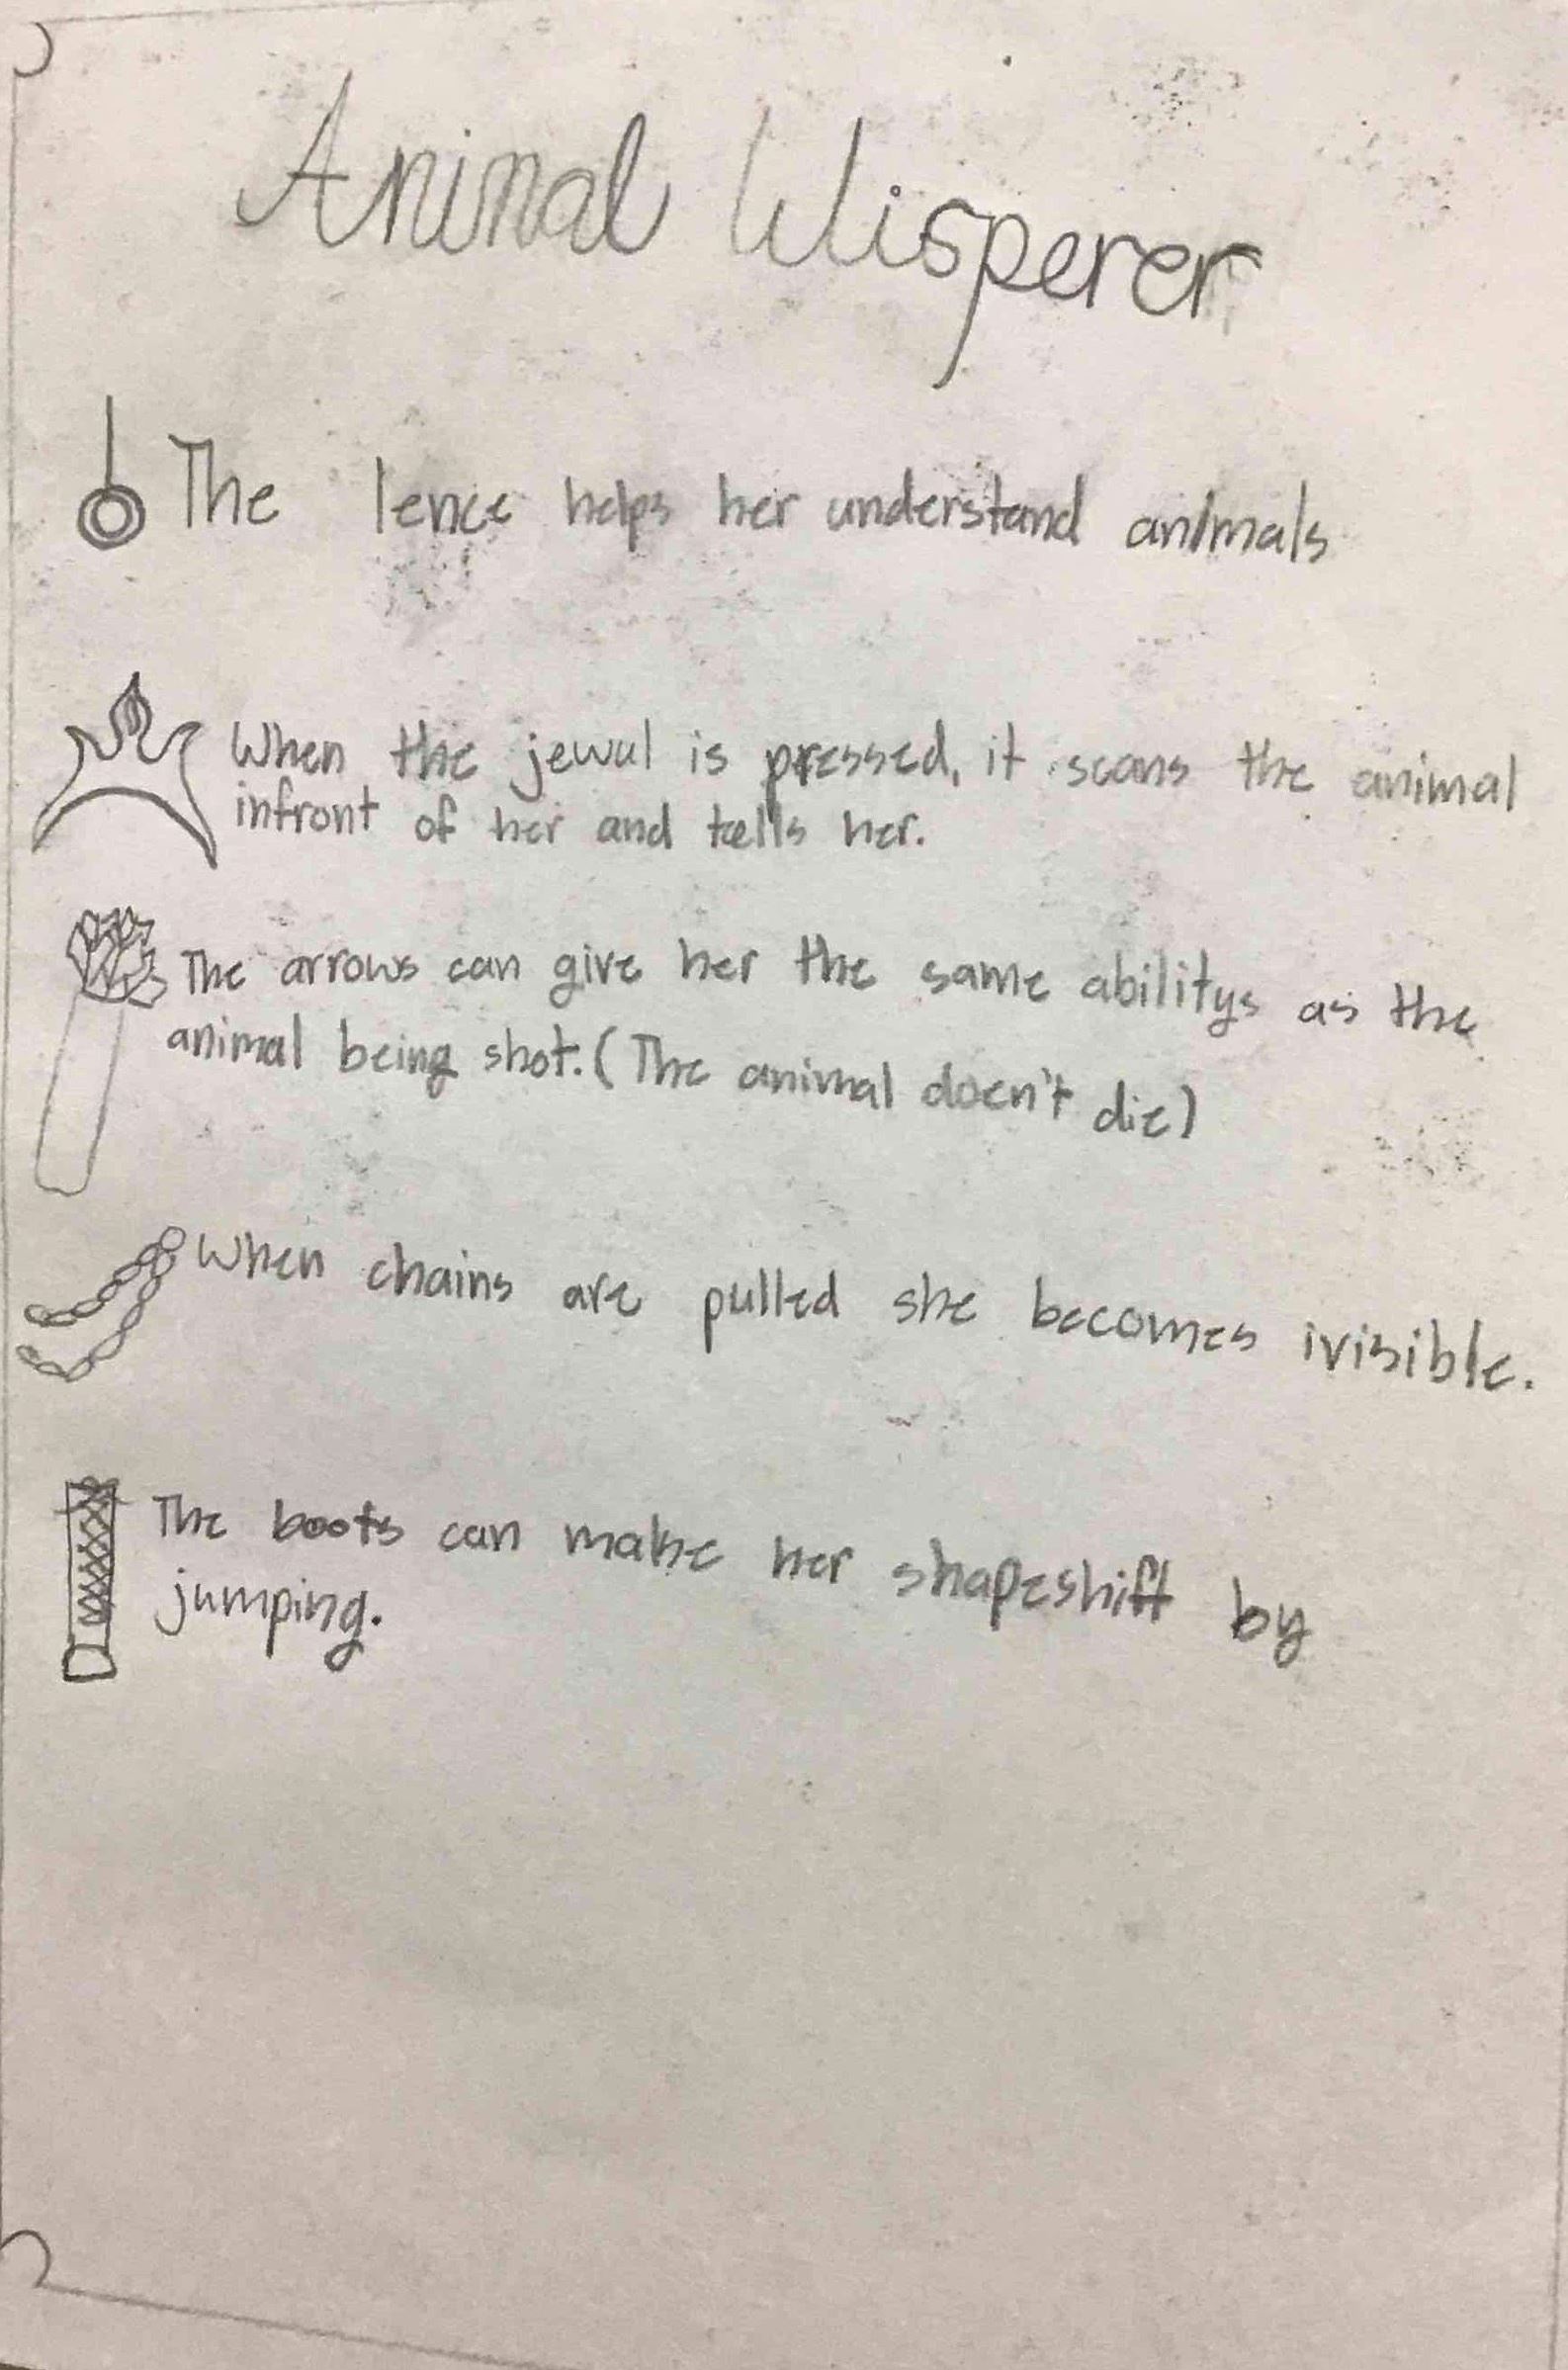 Animal Wisperer
The lence helps her understand animals
When the jewul is pressed, it scans the animal
infront of her and tells her.
The arrows can give her the same abilitys as the
animal being shot. (The animal doen't die)
When chains are pulled she becomes ivisible.
The boots can make her shapeshift by
jumping.